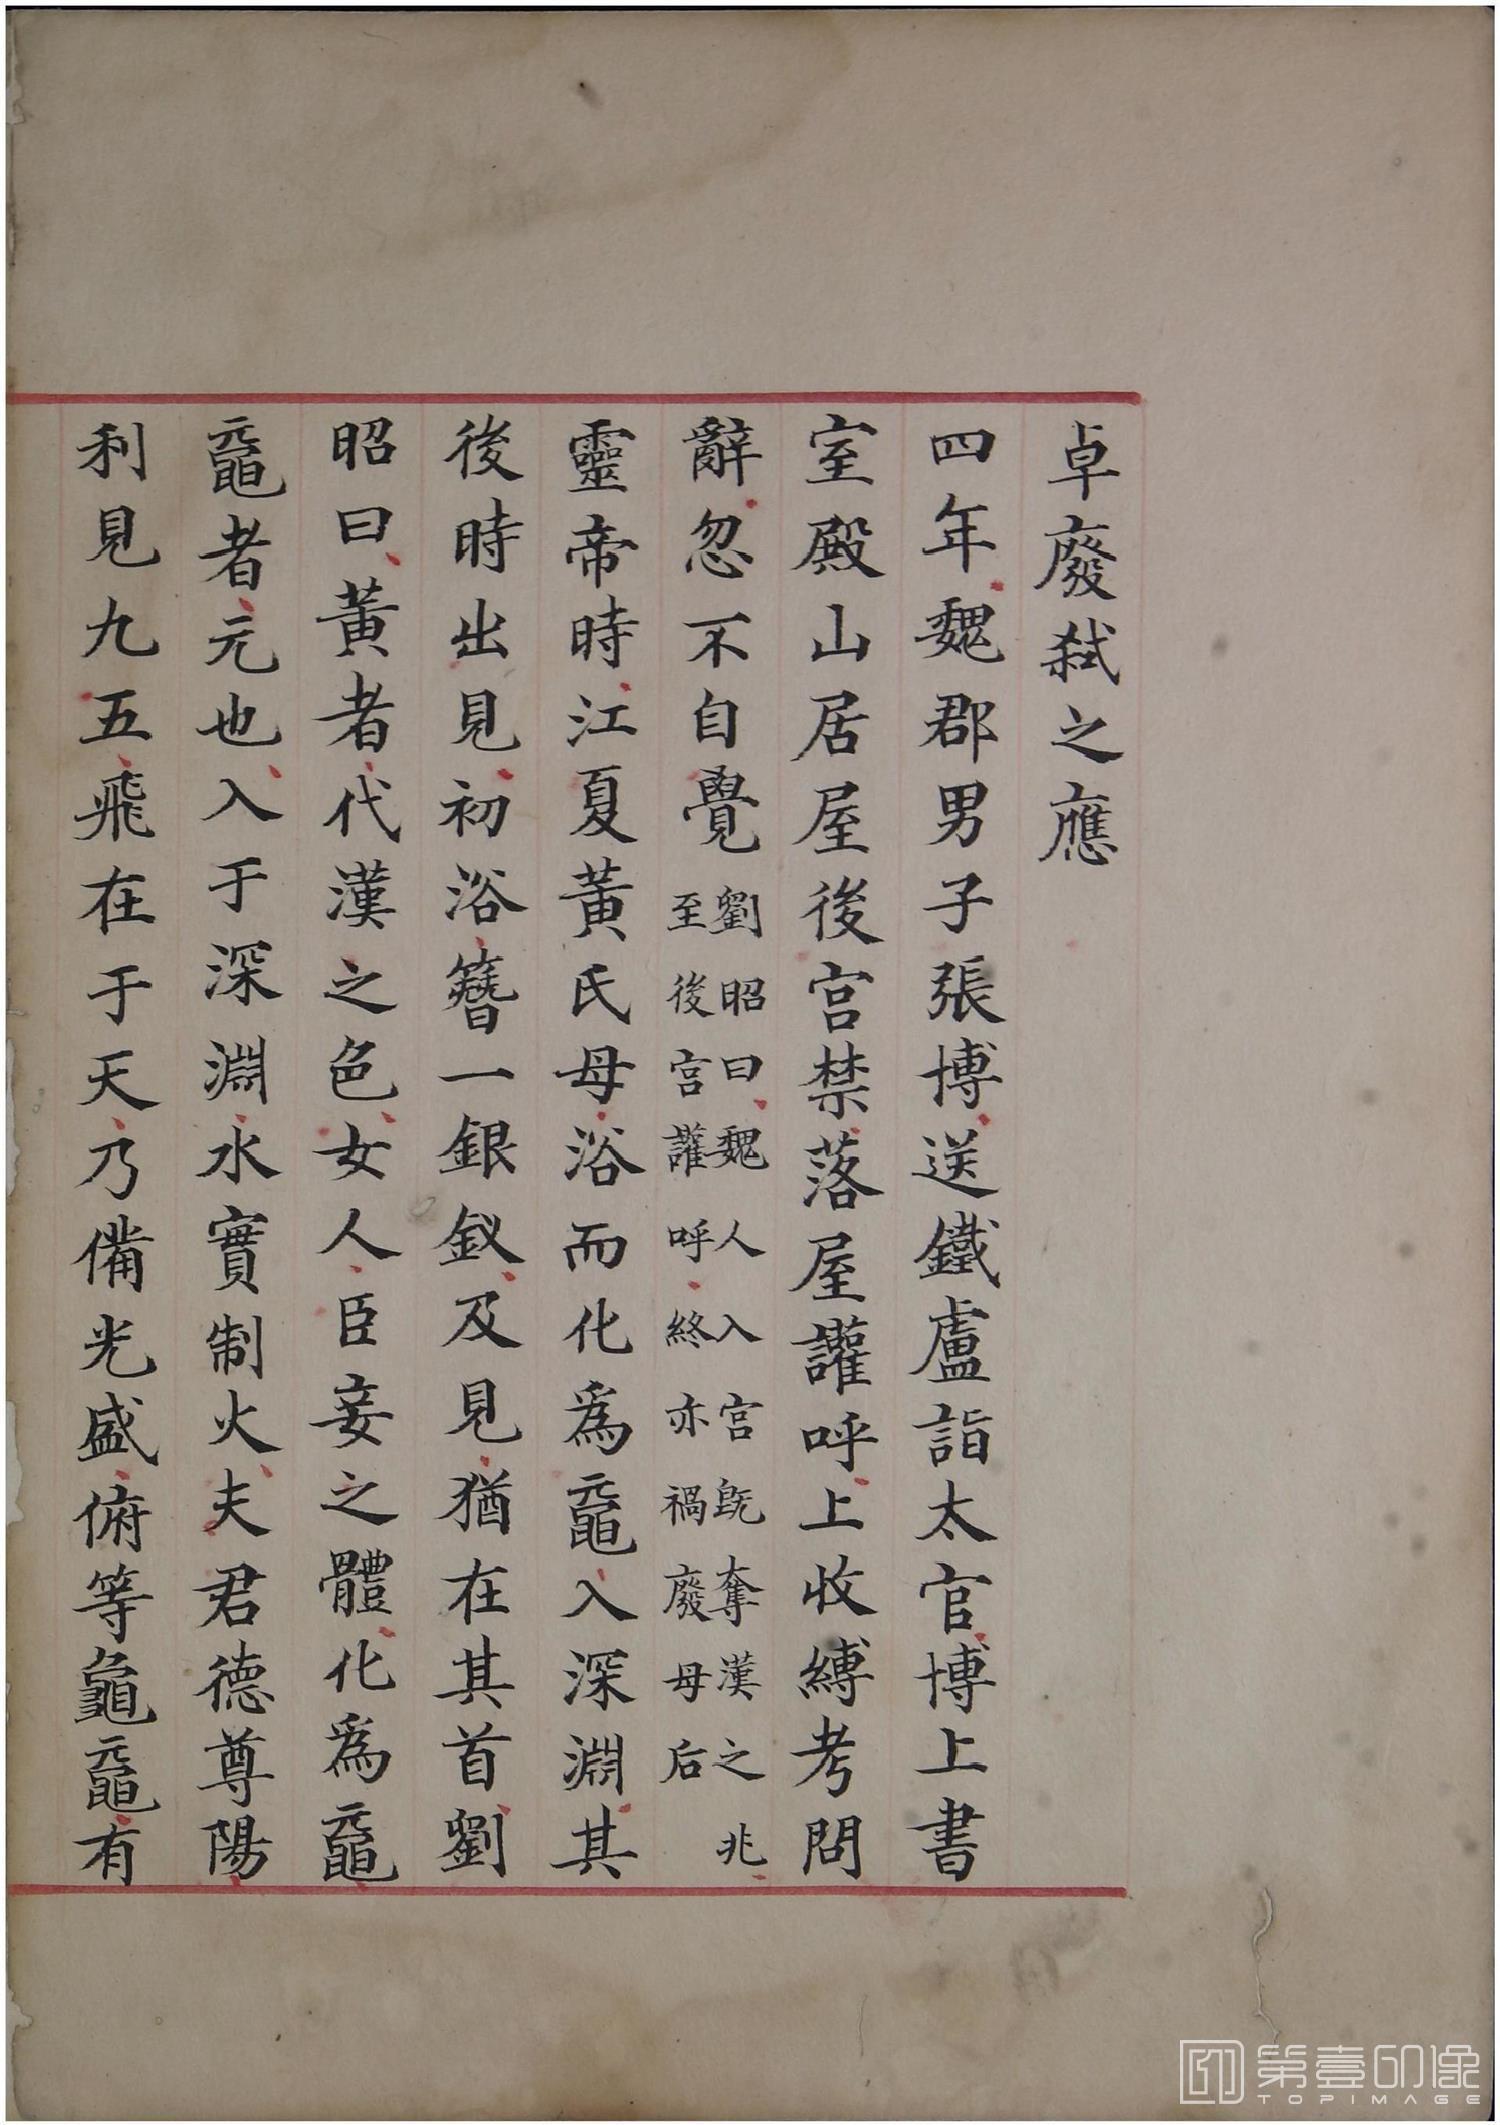 卓廢弑之應
四年魏郡男子張博送鐵盧詣太官博上書
室殿山居屋後宮禁落屋讙呼上收縛考問
辭忽不自覺劉昭曰魏人入宮既奪漢之兆
至後宮讙呼終亦禍廢母后
靈帝時江夏黃氏母浴而化爲黿入深淵其
後時出見初浴簪一銀釵及見猶在其首劉
昭曰黃者代漢之色女人臣妾之體化爲黿
黿者元也入于深淵水實制火夫君德尊陽
利見九五飛在于天乃備光盛俯等龜黿有
第壹印像
TOPIMAGE